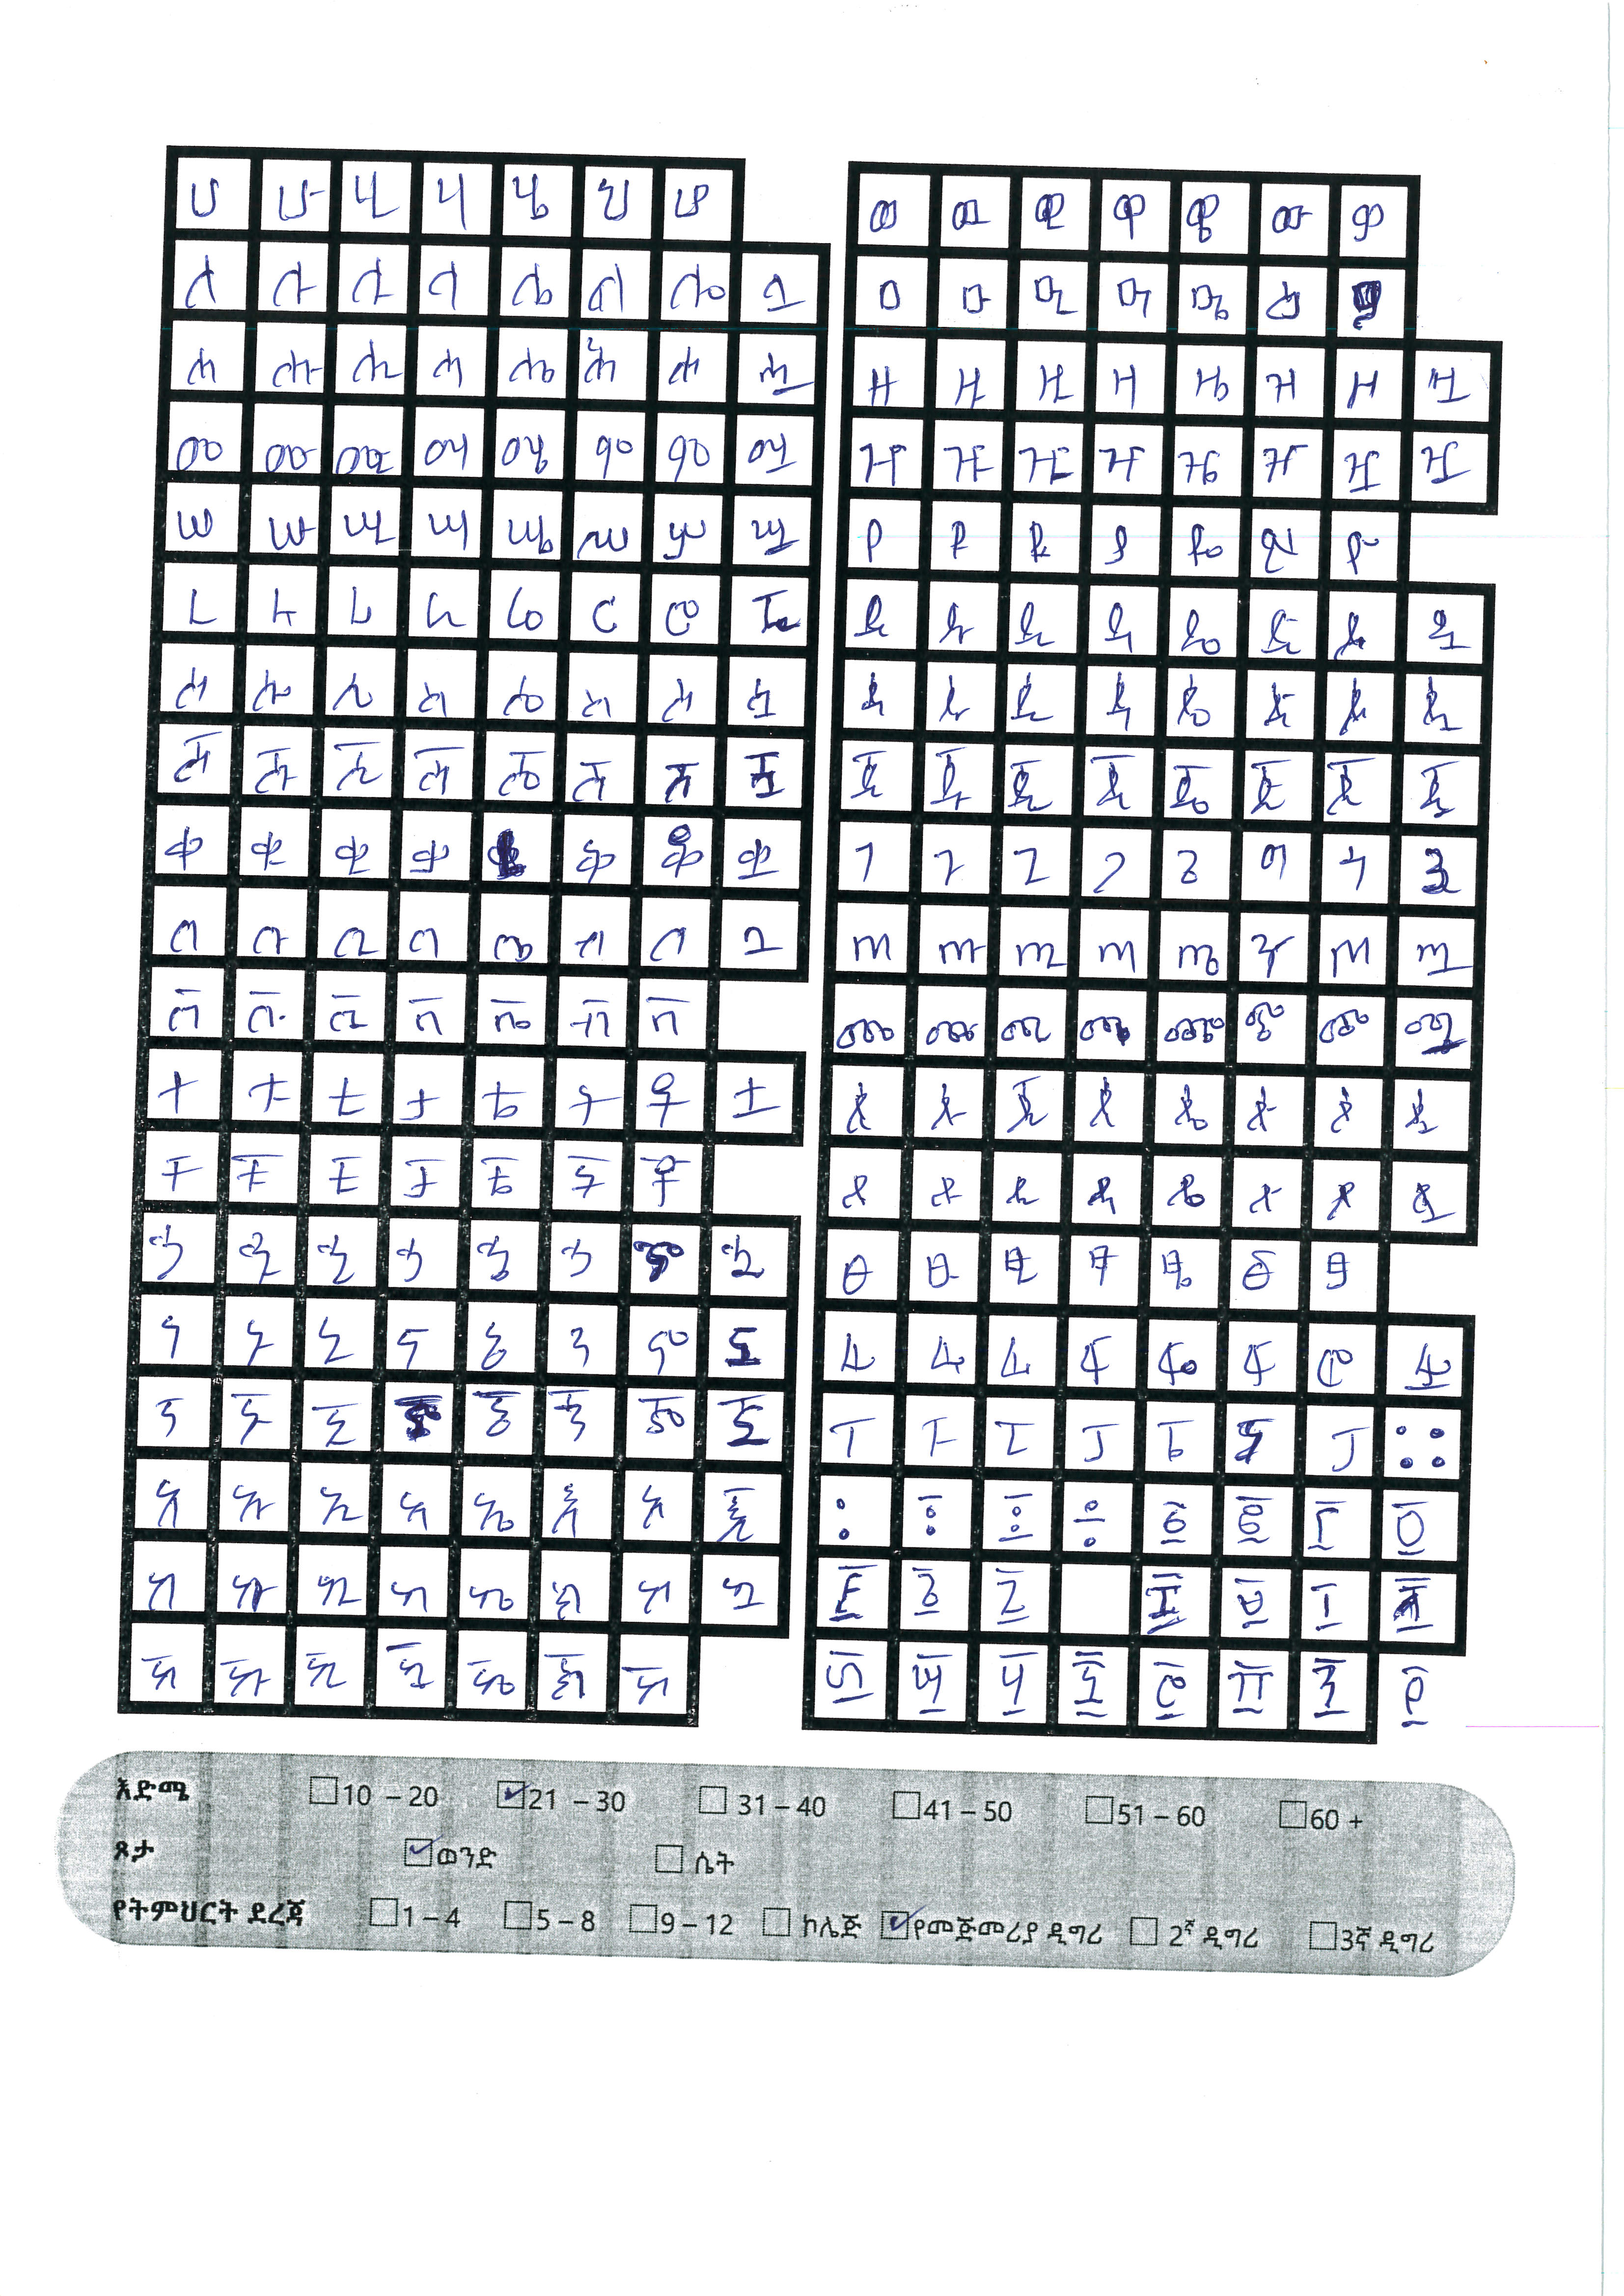 ሀ ሁ ሂ ሃ ሄ ህ ሆ
ለ ሉ ሊ ላ ሌ ል ሎ ሏ
ሐ ሑ ሒ ሓ ሔ ሕ ሖ ሗ
መ ሙ ሚ ማ ሜ ም ሞ ሟ
ሠ ሡ ሢ ሣ ሤ ሥ ሦ ሧ
ረ ሩ ሪ ራ ሬ ር ሮ ሯ
ሰ ሱ ሲ ሳ ሴ ስ ሶ ሷ
ሸ ሹ ሺ ሻ ሼ ሽ ሾ ሿ
ቀ ቁ ቂ ቃ ቅ ቆ ቋ
በ ቡ ቢ ባ ቤ ብ ቦ ቧ
ቨ ቩ ቪ ቫ ቬ ቭ ቮ
ተ ቱ ቲ ታ ቴ ት ቶ ቷ
ቸ ቹ ቺ ቻ ቼ ች ቾ
ኀ ኁ ኂ ኃ ኄ ኅ ኆ ኋ
ነ ኑ ኒ ና ኔ ን ኖ ኗ
ኘ ኙ ኚ ኜ ኝ ኞ ኟ
አ ኡ ኢ ኣ ኤ እ ኦ ኧ
ከ ኩ ኪ ካ ኬ ክ ኮ ኳ
ኸ ኹ ኺ ኻ ኼ ኽ ኾ
ወ ዉ ዊ ዋ ዌ ው ዎ
ዐ ዑ ዒ ዓ ዔ ዕ
ዘ ዙ ዚ ዛ ዜ ዝ ዞ ዟ
ዠ ዡ ዢ ዣ ዤ ዥ ዦ ዧ
የ ዩ ዪ ያ ዬ ይ ዮ
ደ ዱ ዲ ዳ ዴ ድ ዶ ዷ
ጀ ጁ ጂ ጃ ጄ ጅ ጆ ጇ
ገ ጉ ጊ ጋ ጌ ግ ጎ ጓ
ጠ ጡ ጢ ጣ ጤ ጥ ጦ ጧ
ጨ ጩ ጪ ጫ ጬ ጭ ጮ ጯ
ጰ ጱ ጲ ጳ ጴ ጵ ጶ ጷ
ጸ ጹ ጺ ጻ ጼ ጽ ጾ ጿ
ፀ ፁ ፂ ፃ ፄ ፅ ፆ
ፈ ፉ ፊ ፋ ፌ ፍ ፎ ፏ
ፐ ፑ ፒ ፓ ፔ ፕ ፖ ።
፡ ፣ ፤ ÷ ፩ ፪ ፫ ፬
፭ ፮ ፯ ፱ ፲
፳ ፴ ፵ ፶ ፷ ፸ ፹ ፺
እድሜ 10 – 20 21 – 30 31 – 40 41 – 50 51 – 60 60 +
ጾታ ወንድ ሴት
የትምህርት ደረጃ 1 – 4 5 – 8 9 – 12 ኮሌጅ የመጀመሪያ ዲግሪ 2ኛ ዲግሪ 3ኛ ዲግሪ